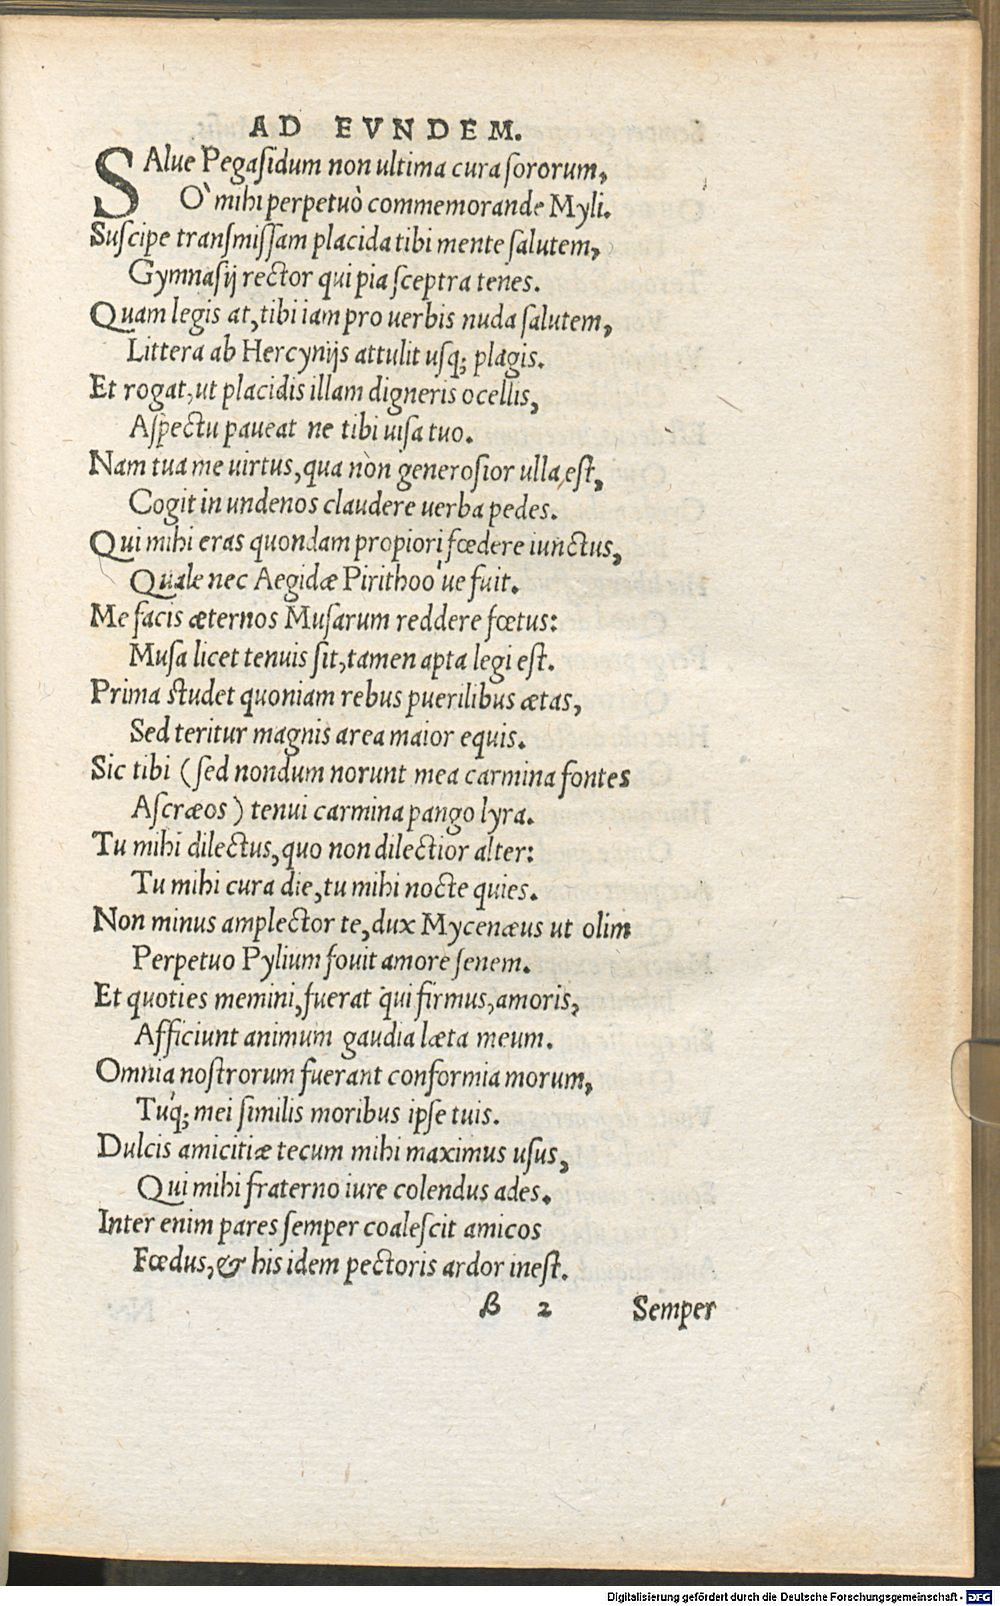 AD EVNDEM.
SAlue Pegasidum non ultima cura sororum,
O' mihi perpetuò commemorande Myli.
Suscipe transmissam placida tibi mente salutem,
Gymnasij rector qui pia sceptra tenes.
Quam legis at, tibi iam pro uerbis nuda salutem,
Littera ab Hercynijs attulit usq; plagis.
Et rogat, ut placidis illam digneris ocellis,
Aspectu paueat ne tibi uisa tuo.
Nam tua me uirtus, qua non generosior ulla est,
Cogit in undenos claudere uerba pedes.
Qui mihi eras quondam propiori fœdere iunctus,
Quale nec Aegidæ Pirithoo ́ue fuit.
Me facis æternos Musarum reddere fœtus:
Musa licet tenuis sit, tamen apta legi est.
Prima studet quoniam rebus puerilibus ætas,
Sed teritur magnis area maior equis.
Sic tibi (sed nondum norunt mea carmina fontes
Ascræos) tenui carmina pango lyra.
Tu mihi dilectus, quo non dilectior alter:
Tu mihi cura die, tu mihi nocte quies.
Non minus amplector te, dux Mycenæus ut olim
Perpetuo Pylium fouit amore senem.
Et quoties memini, fuerat qui firmus, amoris,
Afficiunt animum gaudia læta meum.
Omnia nostrorum fuerant conformia morum,
Tuq́; mei similis moribus ipse tuis.
Dulcis amicitiæ tecum mihi maximus usus,
Qui mihi fraterno iure colendus ades.
Inter enim pares semper coalescit amicos
Fœdus, & his idem pectoris ardor inest.
B 2 Semper
Digitalisierung gefördert durch die Deutsche Forschungsgemeinschaft - DFG